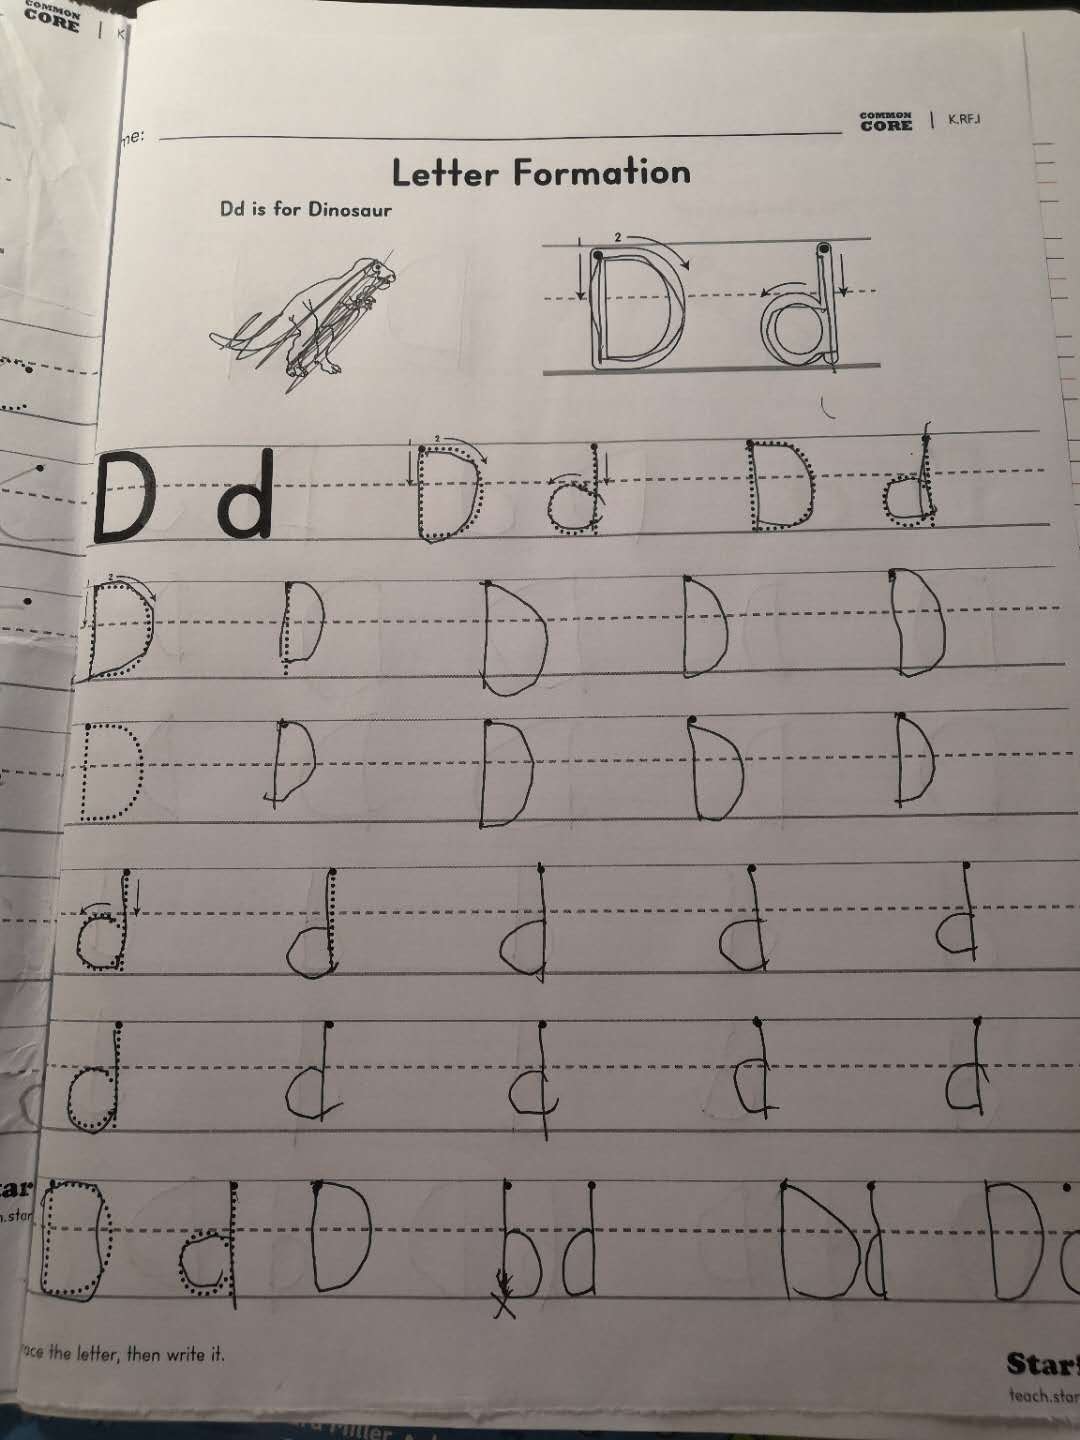 COMMON
CORE | K
me:
COMMON
CORE | K.RF.1
Letter Formation
Dd is for Dinosaur
1 2
D d
D d 1 2 D d D d
1 2 D D D D D
D D D D D
d d d d d
d d d d d
D d D b d D d D d
tar
n.star
ace the letter, then write it.
Star
teach.star
Miller